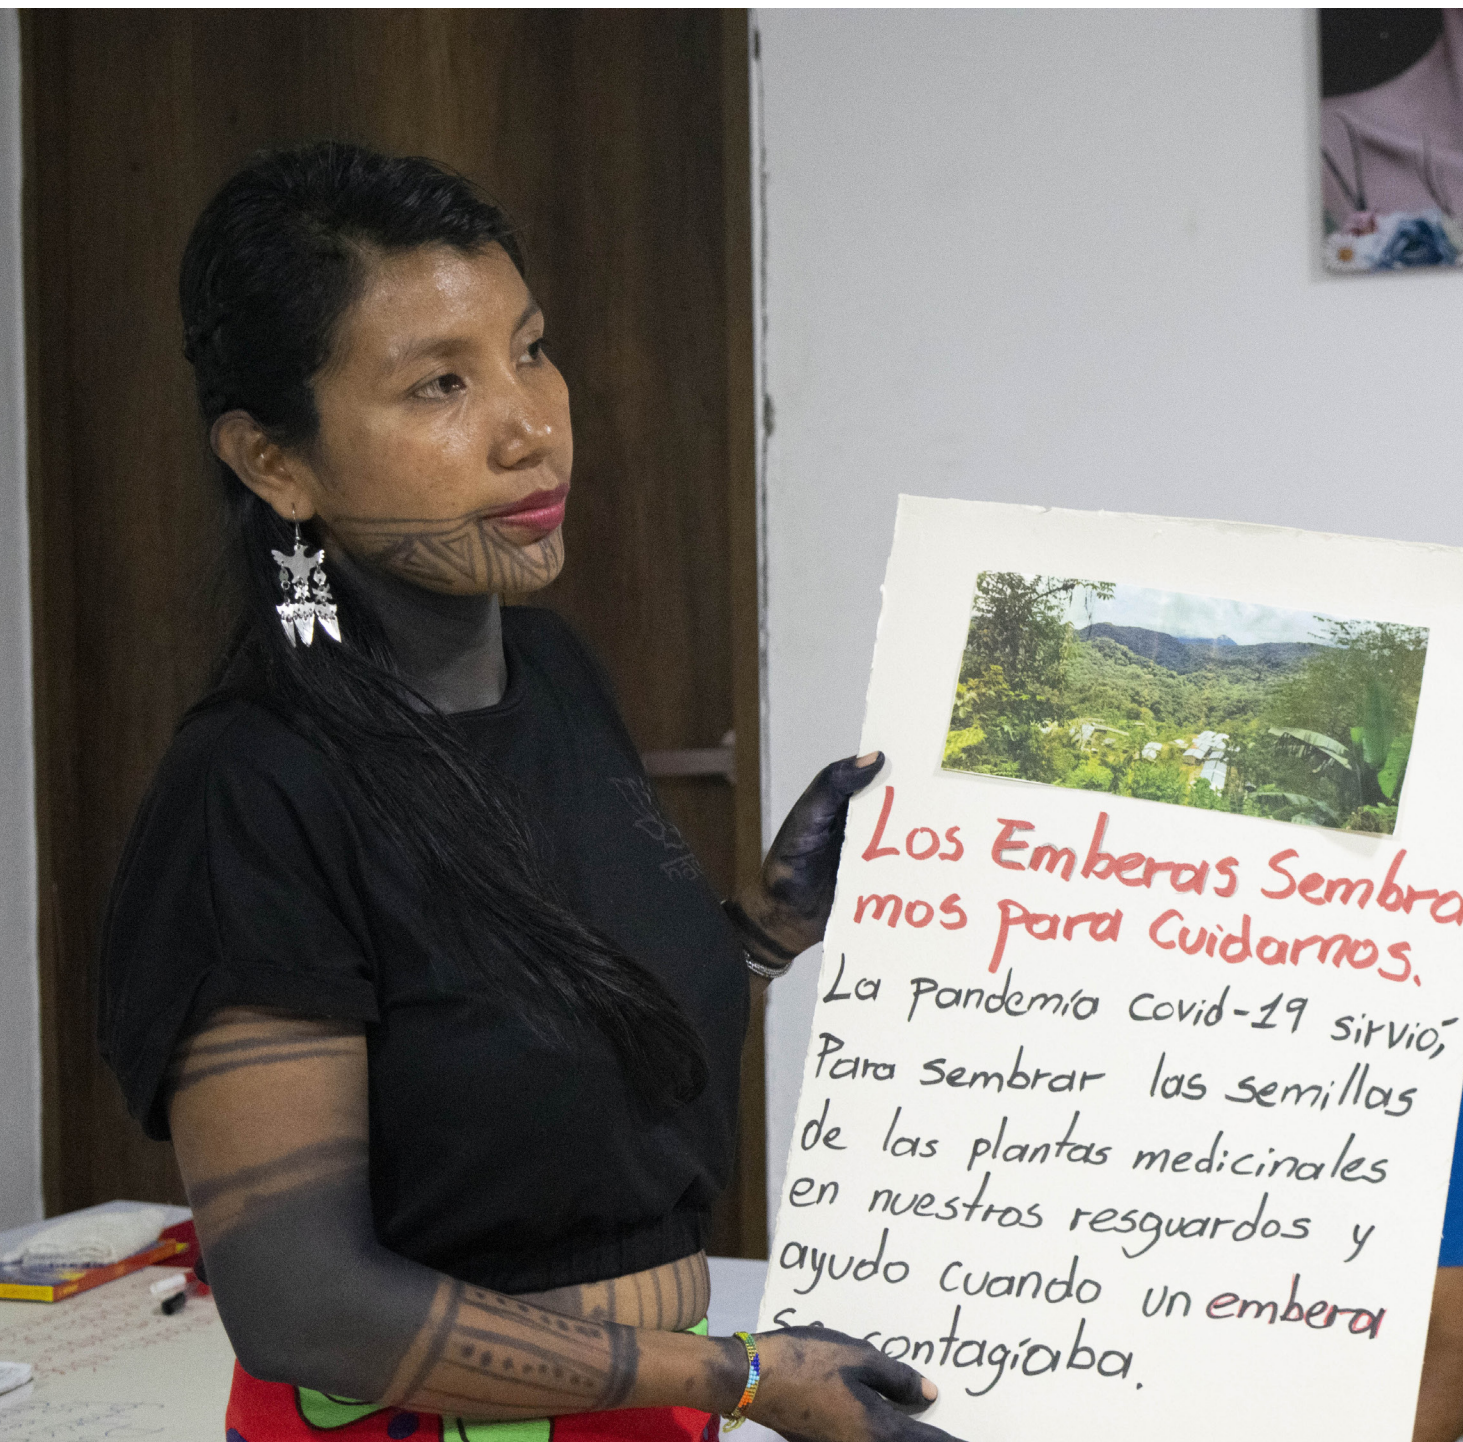 Los Emberas Sembra
mos para Cuidarnos.
La pandemia covid-19 sirvió,
Para sembrar las semillas
de las plantas medicinales
en nuestros resguardos y
ayudo cuando un embera
se contagiaba.